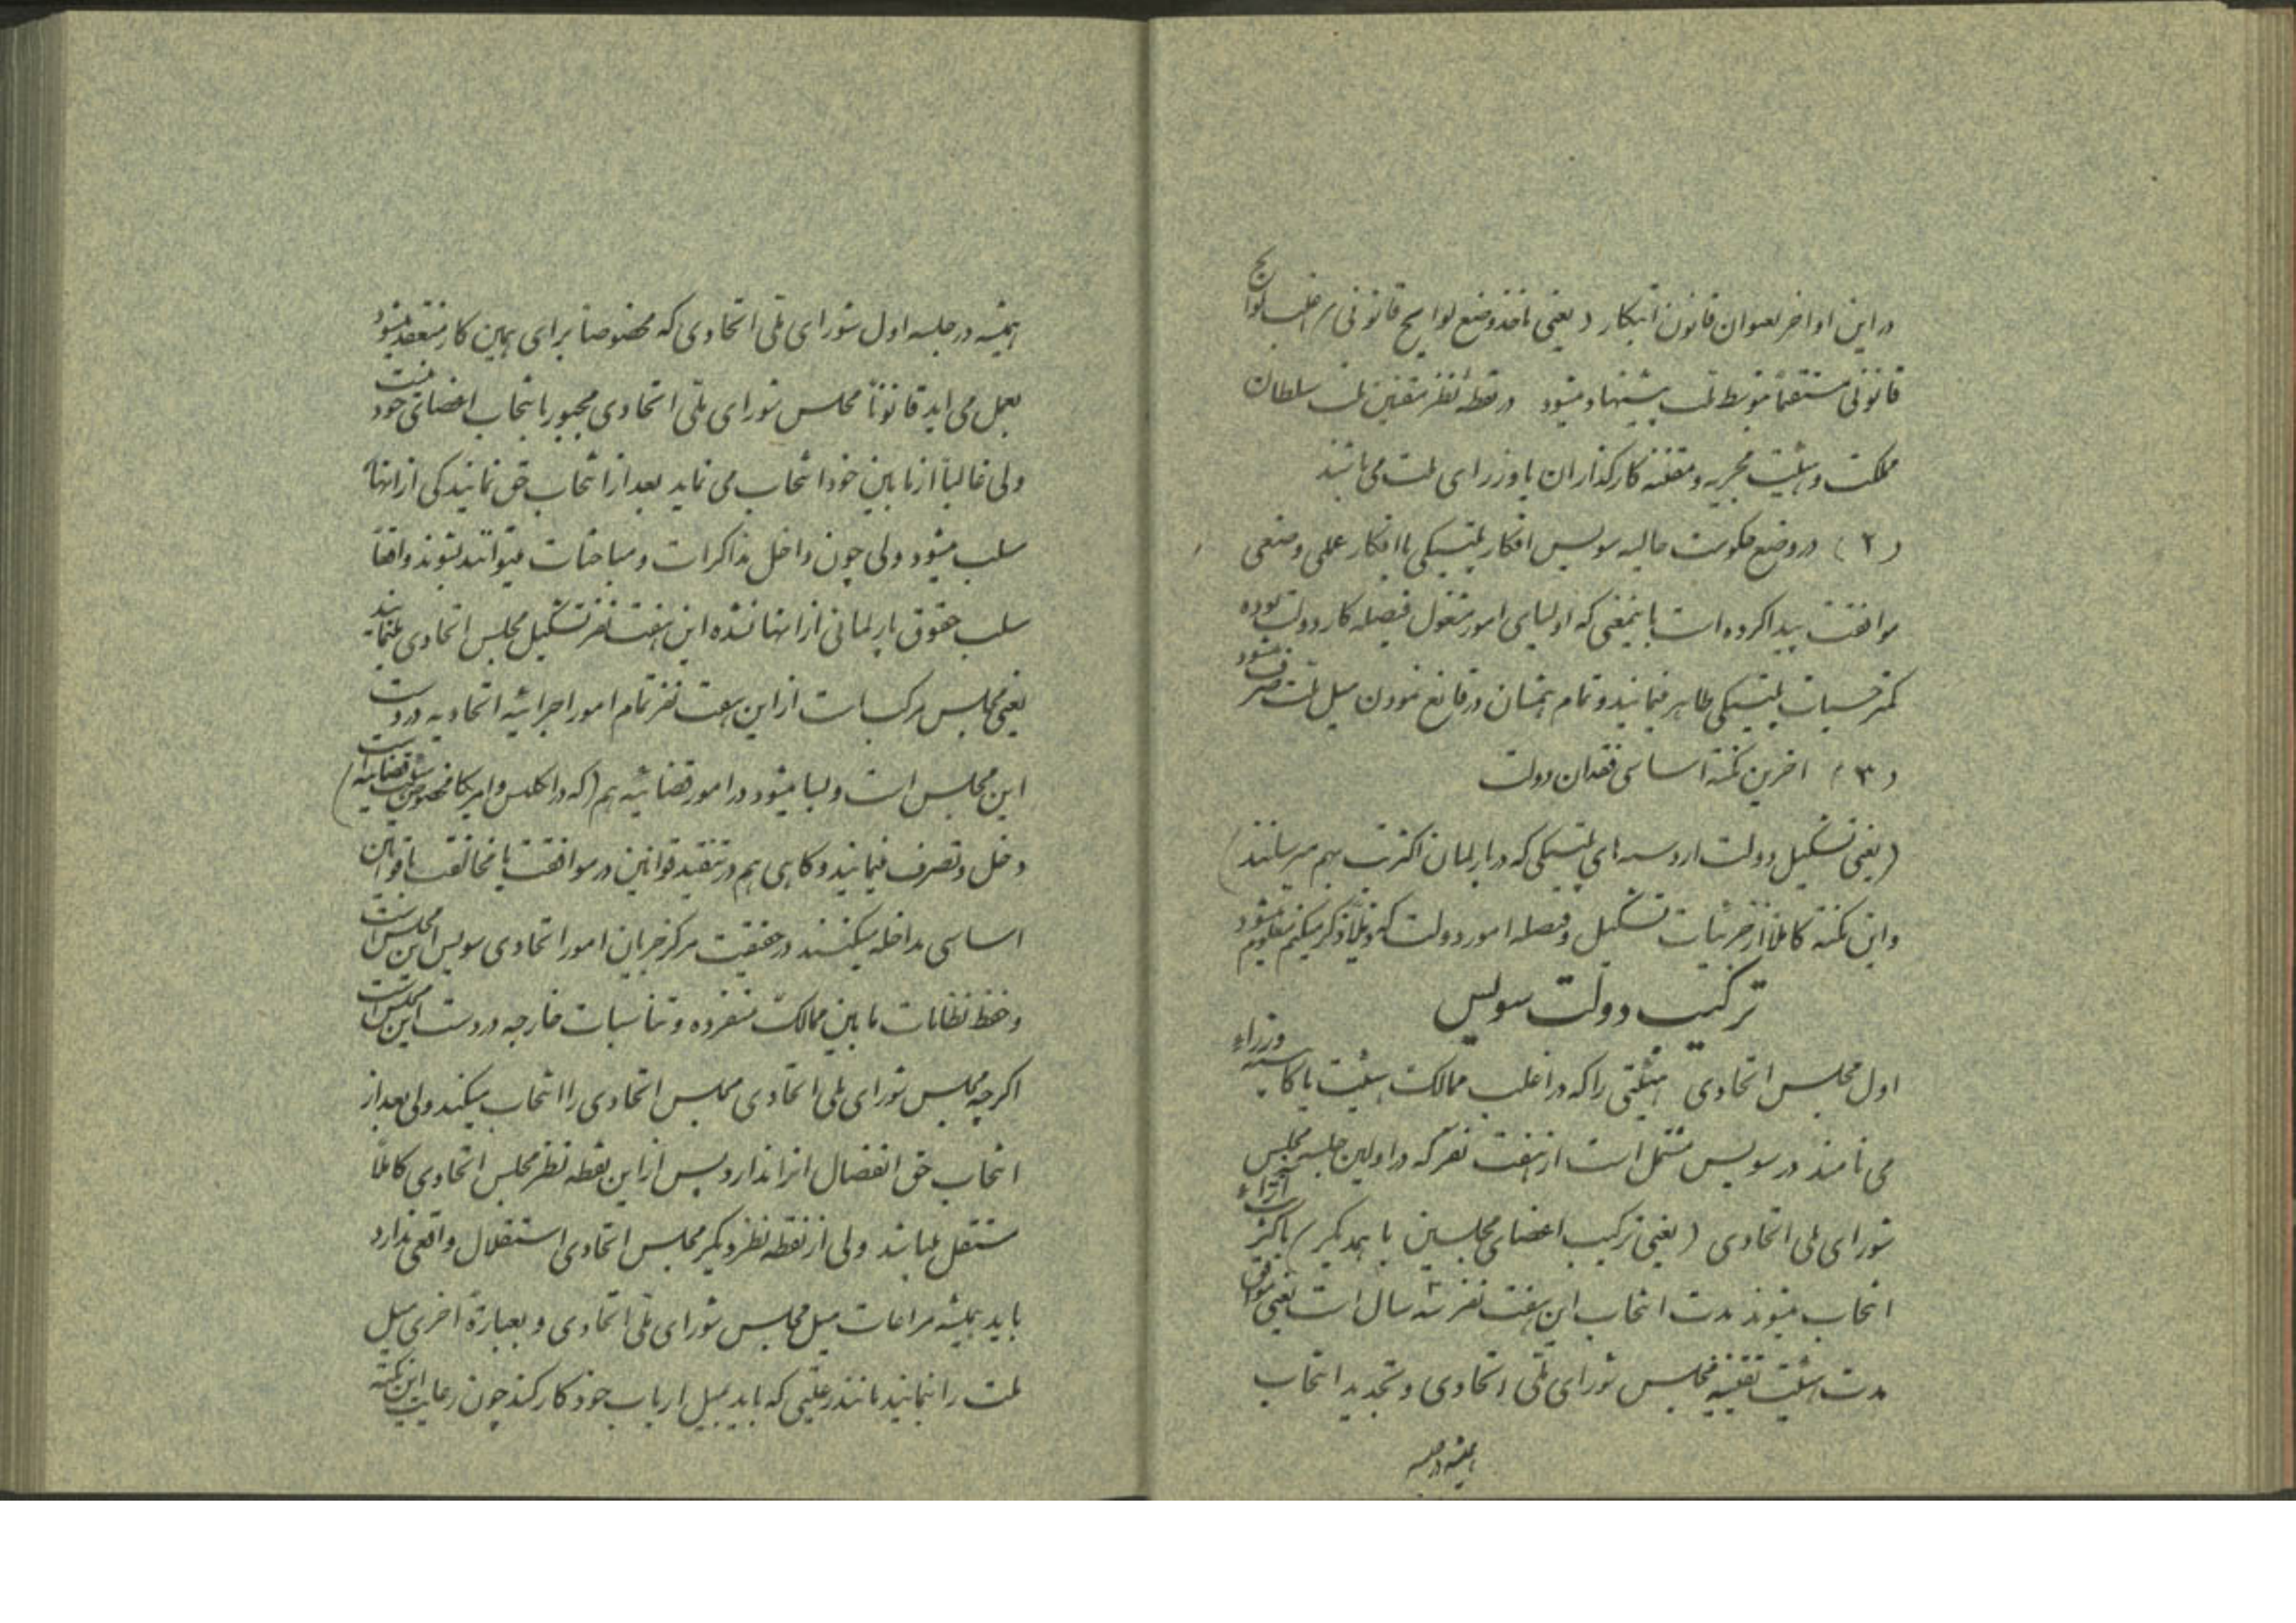 در این اواخر بعنوان قانون ابتکار (یعنی ماخذ وضع لوایح قانونی) اغلب لوایح
قانونی مستقیماً توسط ملت پیشنهاد میشود در نقطه نظر مقنین ملت سلطان
مملکت و هیئت مجریه و مقننه کارگذاران یا وزرای ملت می باشند
(۲) در وضع حکومت حالیه سویس افکار پلتیکی با افکار علمی و صنعتی
موافقت پیدا کرده است باینمعنی که اولیای امور مشغول فیصله کار دولت بوده
کمتر حسیات پلتیکی ظاهر مینمایند و تمام همشان در قانع نمودن میل ملت صرف میشود
(۳) اخرین نکته اساسی فقدان دولت
(یعنی تشکیل دولت از دسه های پلتیکی که در پارلمان اکثریت بهم میرسانند)
و این نکته کاملاً از جزئیات تشکیل و فیصله امور دولت که ذیلاً ذکر میکنم معلوم میشود
ترکیب دولت سویس
اول مجلس اتحادی هیئتی را که در اغلب ممالک هیئت یا کابینه وزراء
می نامند در سویس مشتمل است از هفت نفر که در اولین جلسه مجلس
شورای ملی اتحادی (یعنی ترکیب اعضای مجلسین با همدیگر) باکثریت آراء
انتخاب میشوند مدت انتخاب این هفت نفر سه سال است یعنی موافق
مدت هیئت تقنینیه مجلس شورای ملی اتحادی و تجدید انتخاب
همیشه در جلسه
همیشه در جلسه اول شورای ملی اتحادی که مخصوصاً برای همین کار منعقد میشود
بعمل می اید قانوناً مجلس شورای ملی اتحادی مجبور بانتخاب اعضای خود نیست
ولی غالباً از مابین خود انتخاب می نماید بعد از انتخاب حق نمایندگی از انها
سلب میشود ولی چون داخل مذاکرات و مباحثات میتوانند بشوند واقعاً
سلب حقوق پارلمانی از انها نشده این هفت نفر تشکیل مجلس اتحادی مینمایند
یعنی مجلس مرکب است از این هفت نفر تمام امور اجرائیه اتحادیه در دست
این مجلس است و بسا میشود در امور قضائیه هم (که در انگلیس و امریکا مخصوص هیئت قضائیه است)
دخل و تصرف مینمایند و گاهی هم در تنقید قوانین در موافقت یا مخالفت با قوانین
اساسی مداخله میکنند در حقیقت مرکز جریان امور اتحادی سویس این مجلس است
و حفظ نظامات مابین ممالک منفرده و تناسبات خارجه در دست این مجلس است
اگرچه مجلس شورای ملی اتحادی مجلس اتحادی را انتخاب میکند ولی بعد از
انتخاب حق انفصال انرا ندارد پس از این نقطه نظر مجلس اتحادی کاملاً
مستقل میباشد ولی از نقطه نظر دیگر مجلس اتحادی استقلال واقعی ندارد
باید همیشه مراعات میل مجلس شورای ملی اتحادی و بعبارة اخری میل
ملت را نمایند مانند رعیتی که باید بمیل ارباب خود کار کند چون رعایت این نکته